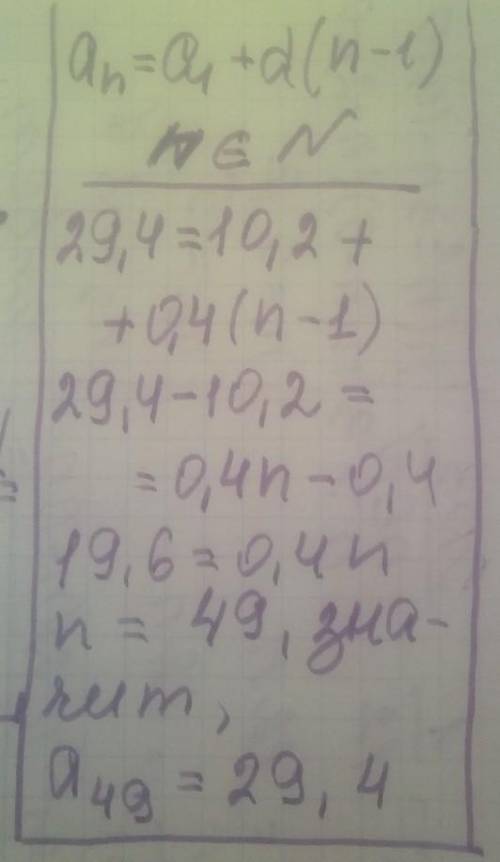 aₙ = a₁ + d(n-1)
n ∈ N
29,4 = 10,2 +
+ 0,4(n-1)
29,4 - 10,2 =
= 0,4n - 0,4
19,6 = 0,4n
n = 49, зна-
чит,
a₄₉ = 29,4